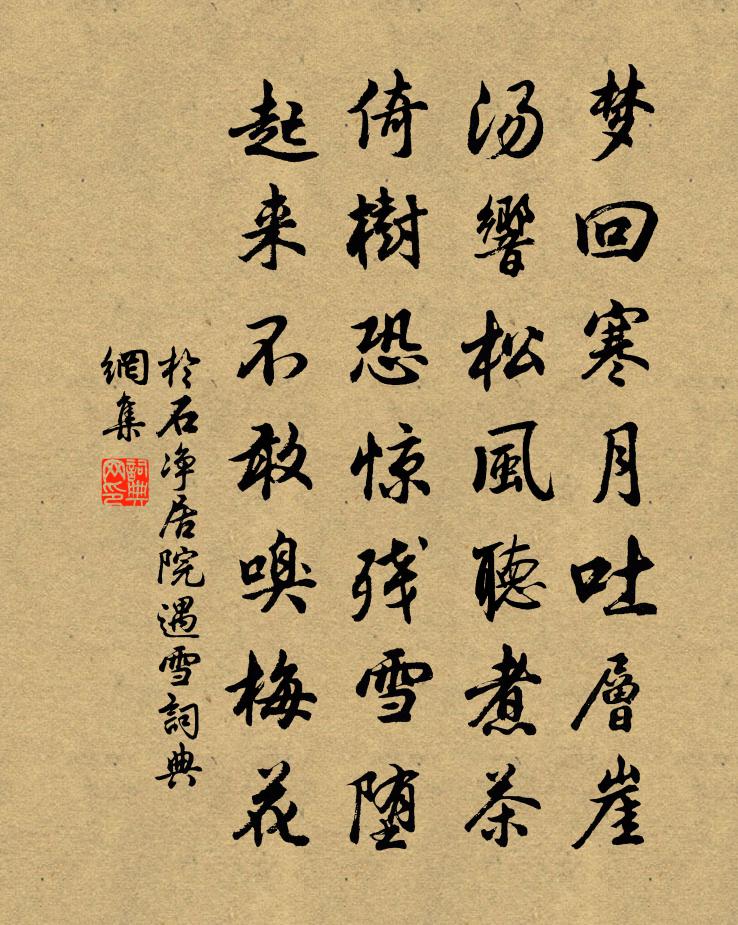 梦回寒月吐層崖
汤響松風聴煮茶
倚樹恐惊残雪堕
起来不敢嗅梅花
於石净居院遇雪詞典
網集
詞典
网印